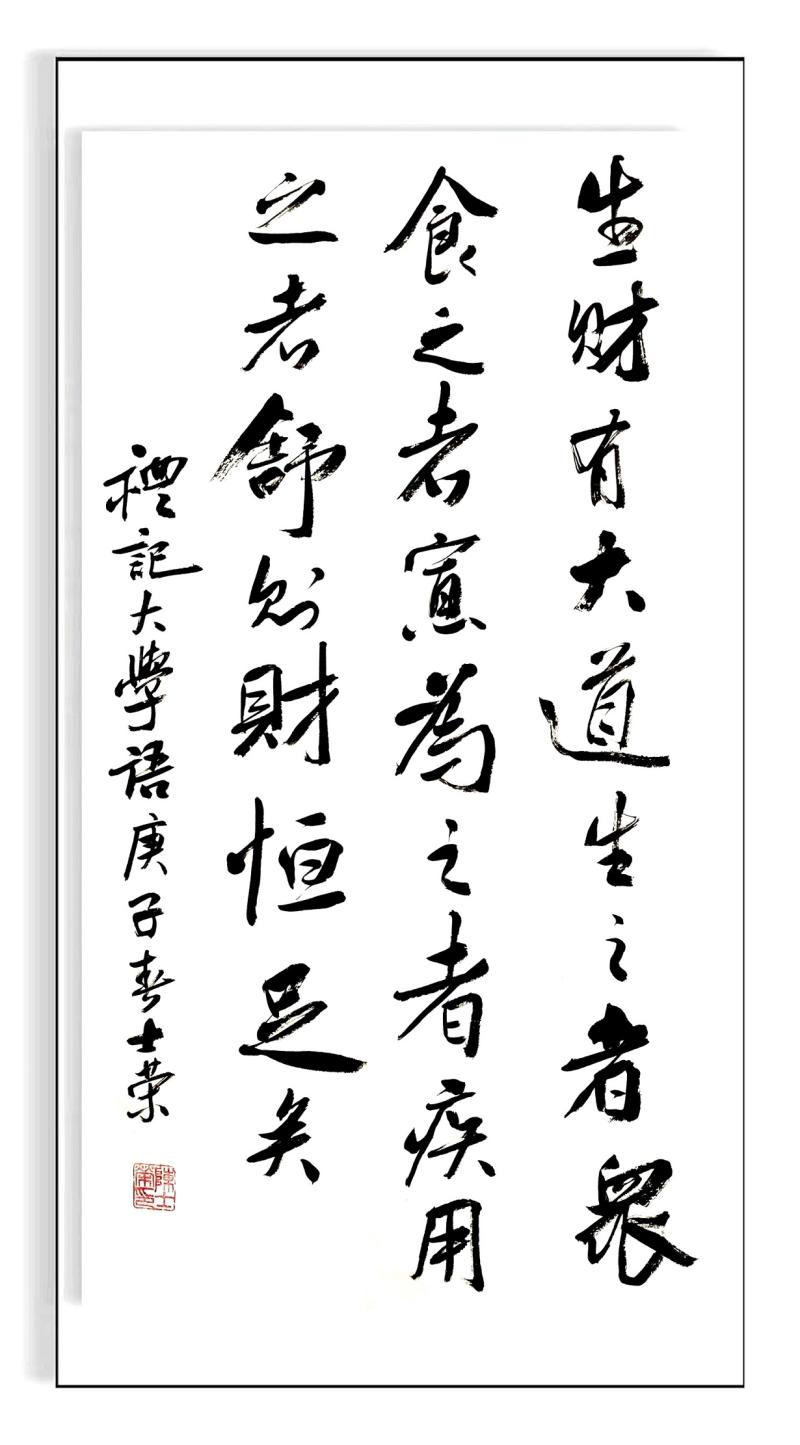 生财有大道生之者眾
食之者寡為之者疾用
之者舒则財恒足矣
禮記大學語庚子春士荣
陳士榮印